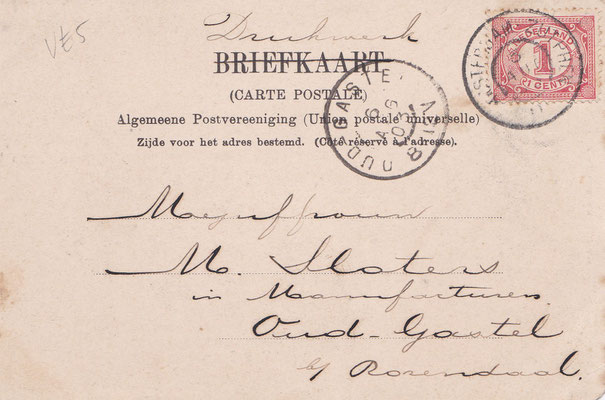 V£5
Drukwerk
BRIEFKAART
(CARTE POSTALE)
Algemeene Postvereeniging (Union postale universelle)
Zijde voor het adres bestemd. (Côté réservé à l'adresse).
NEDERLAND
1
1 CENT
OUD-GASTEL
6 AUG 03
8
Mejuffrouw
M. Sloters
in Manufacturen
Oud-Gastel
b/ Rozendaal.